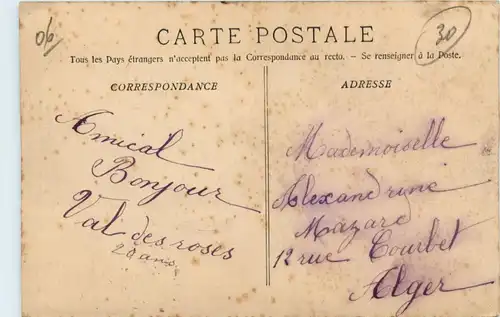 30
CARTE POSTALE
Tous les Pays étrangers n'acceptent pas la Correspondance au recto. — Se renseigner à la Poste.
CORRESPONDANCE
Amical
Bonjour
Val des roses
20 ans
ADRESSE
Mademoiselle
Alexandrine
Mazard
12 rue Courbet
Alger